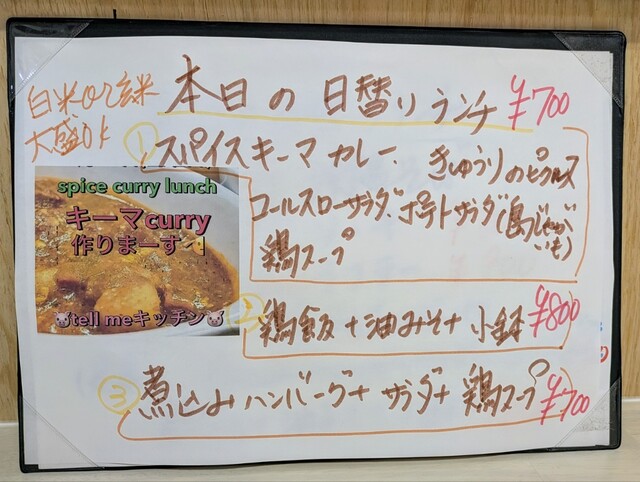 白米or玄米
大盛OK
本日の日替りランチ ¥700
① スパイスキーマカレー、きゅうりのピクルス
コールスローサラダ、ポテトサラダ(島じゃがいも)
鶏スープ
spice curry lunch
キーマcurry
作りまーす
tell meキッチン
② 鶏飯+油みそ+小鉢 ¥800
③ 煮込みハンバーグ+サラダ+鶏スープ ¥700